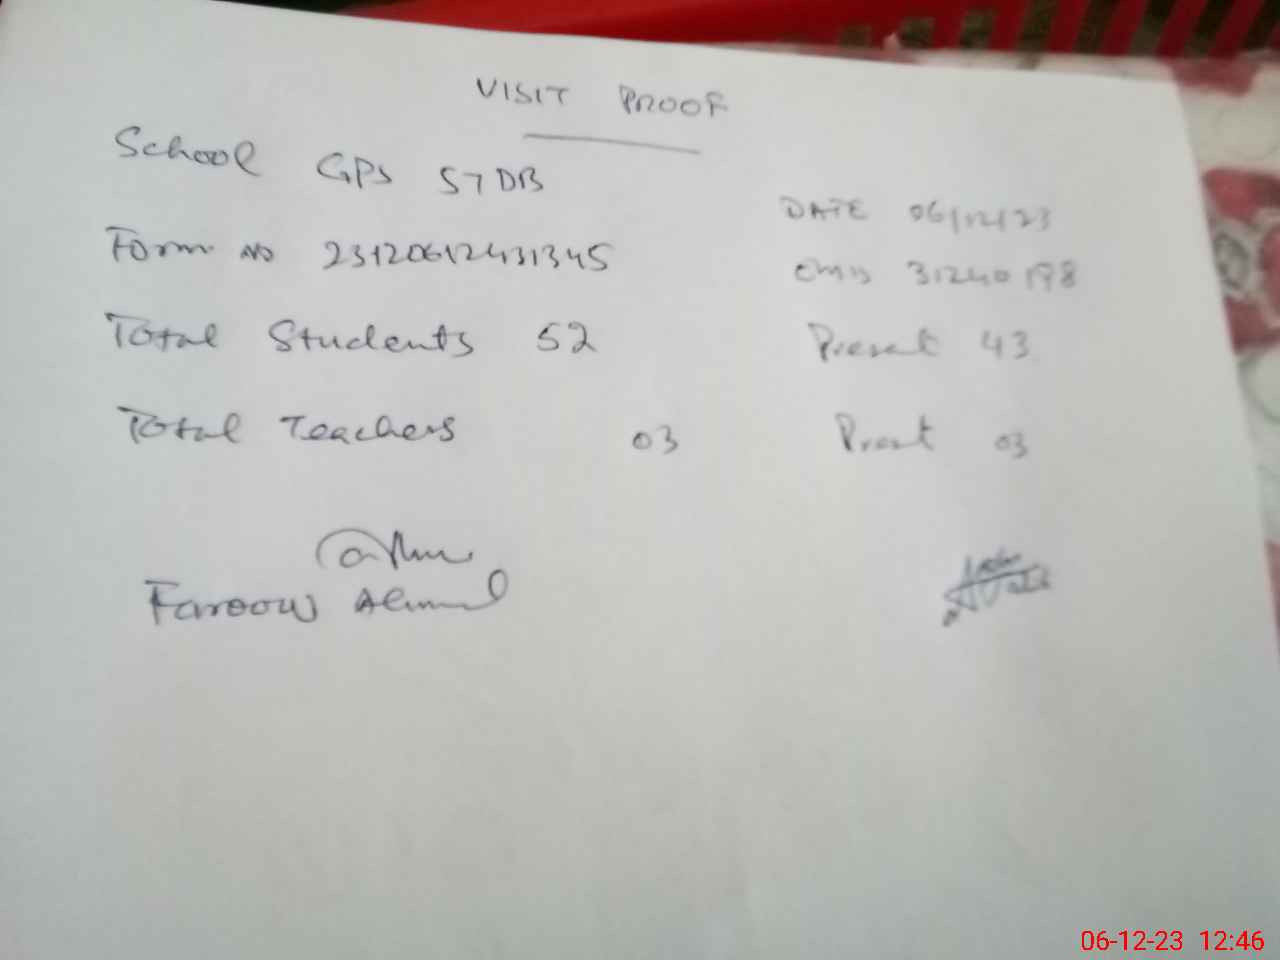 VISIT PROOF
School GPS 57 DB
DATE 06/12/23
Form NO 23120612431345
EMIS 31240198
Total Students 52 Present 43
Total Teachers 03 Present 03
Farooq Ahmed
06-12-23 12:46